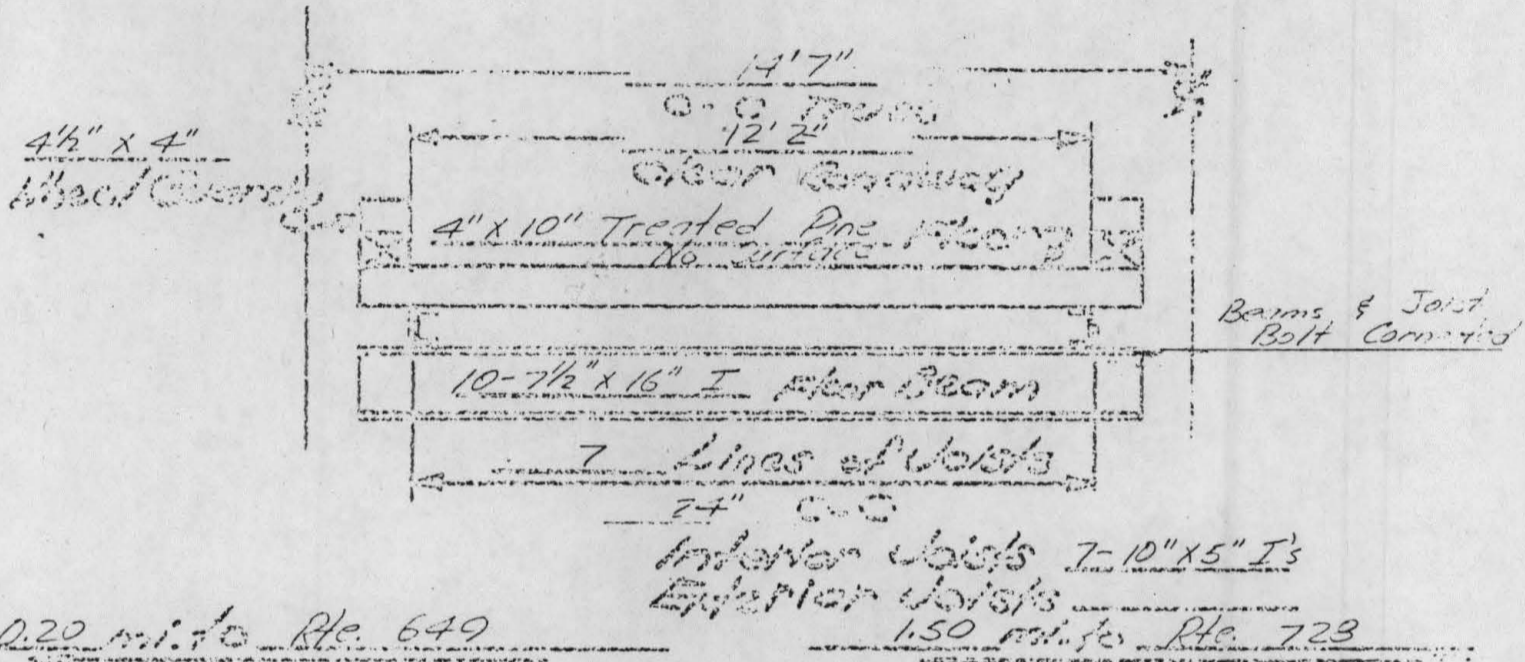 14'7"
C-C Truss
12'2"
Clear Roadway
4½" x 4"
Wheel Guard
4" x 10" Treated Pine Flooring
No Surface
Beams & Joist
Bolt Connected
10-7½" x 16" I Floor Beam
7 Lines of Joists
24" C-C
Interior Joists 7-10" x 5" I's
Exterior Joists
0.20 mi. to Rte. 649
1.50 mi. to Rte. 723